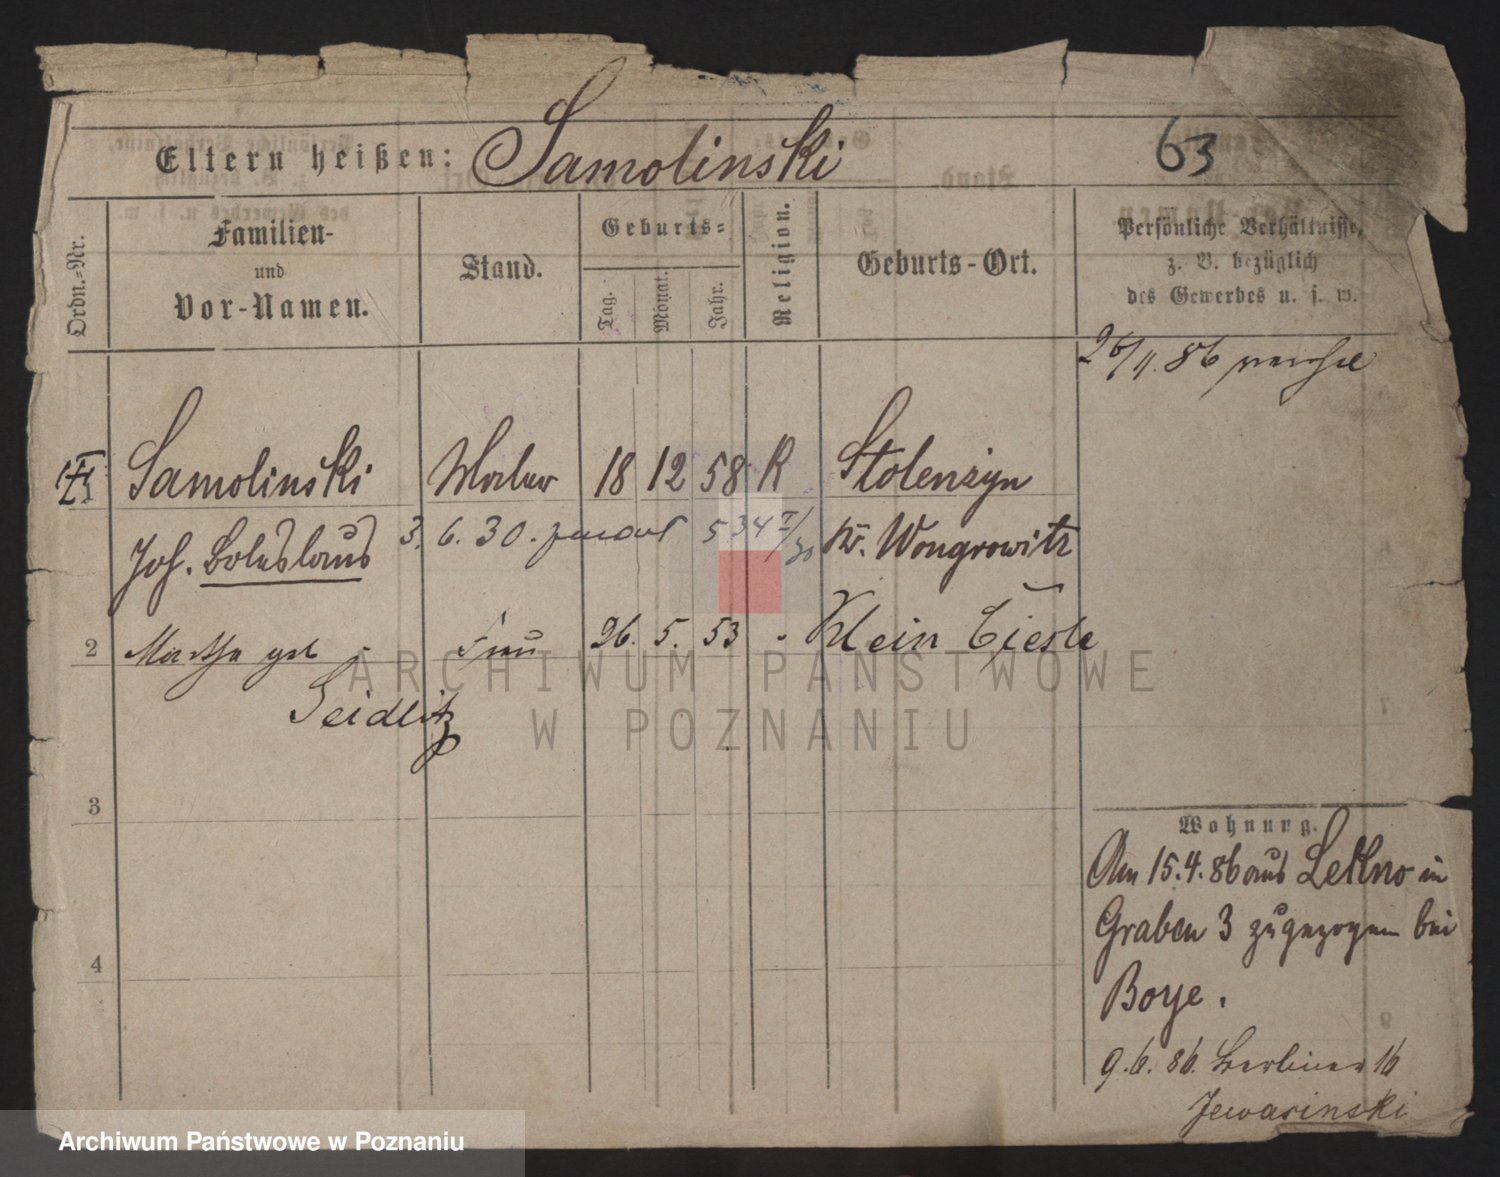 63
Eltern heißen: Samolinski
Ordn.-Nr.
Familien-
und
Vor-Namen.
Stand.
Geburts-
Tag.
Monat.
Jahr.
Religion.
Geburts-Ort.
Persönliche Verhältnisse,
z. B. bezüglich
des Gewerbes u. s. w.
26/4. 86
Samolinski Maler 18 12 58 K Stolenzyn
Joh. Boleslaus 3. 6. 30. 534 Kr. Wongrowitz
2 Martha geb. Frau 26. 5. 53 Klein Cieśle
Seidlitz
3
4
Wohnung.
Am 15.4.86 aus Lekno in
Graben 3 zugezogen bei
Boye.
9.6.86. Berliner 16
Jewasinski
ARCHIWUM PAŃSTWOWE
W POZNANIU
Archiwum Państwowe w Poznaniu